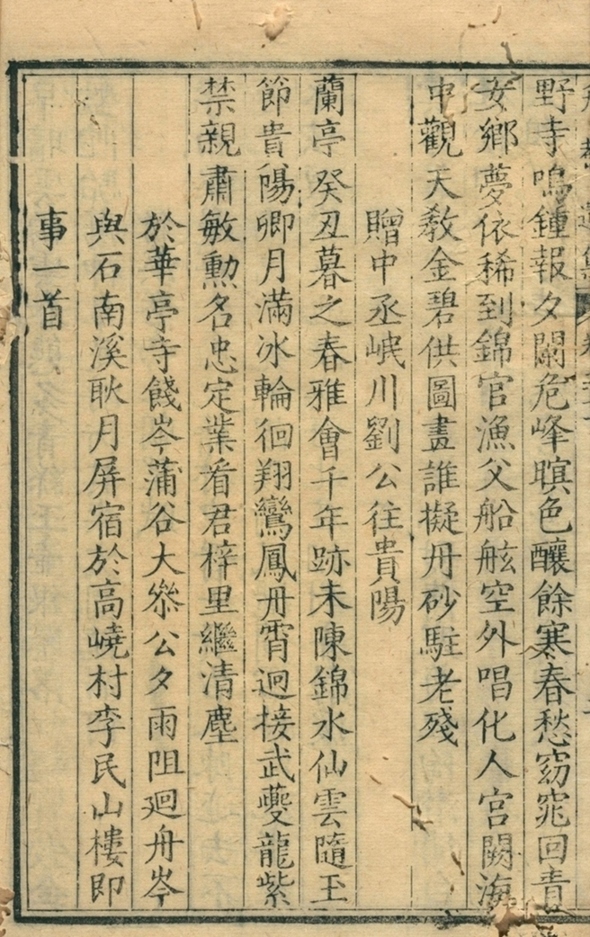 野寺鳴鍾報夕闌危峰暝色釀餘寒春愁窈窕回青
女鄉夢依稀到錦官漁父船舷空外唱化人宮闕海
中觀天敎金碧供圖畫誰擬丹砂駐老殘
贈中丞岷川劉公往貴陽
蘭亭癸丑暮之春雅會千年跡未陳錦水仙雲隨玉
節貴陽卿月滿冰輪徊翔鸞鳳丹霄迥接武夔龍紫
禁親肅敏勳名忠定業看君梓里繼清塵
於華亭寺餞岑蒲谷大叅公夕雨阻廻舟岑
與石南溪耿月屏宿於高嶢村李民山樓即
事一首